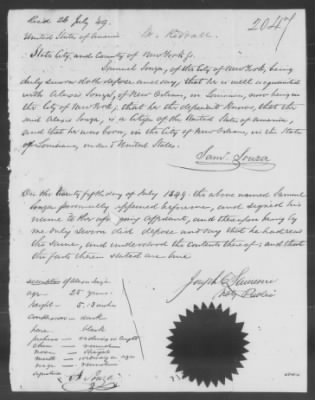 Recd 26 July 49.
W. Roddall.
2047
United States of America
State City, and County of New York ss.
Samuel Souza, of the City of New York, being
duly sworn doth depose and say, that he is well acquainted
with Alexis Souza, of New Orleans, in Louisiana, now being in
the City of New York; that he the deponent knows, that the
said Alexis Souza, is a Citizen of the United States of America,
and that he was born, in the City of New Orleans, in the State
of Louisiana, in the United States.
Saml. Souza
On the Twenty fifth day of July 1849. the above named Samuel
Souza personally appeared before me, and signed his
name to the foregoing affidavit, and thereupon being by
me duly sworn did depose and say that he had read
the same, and understood the contents thereof; and that
the facts therein stated are true
Joseph Lawrence
Noty Public
description of Alexis Souza
age - 25 years.
height - 5.
complexion - dark
hair black
forehead
chin - round
nose - straight
mouth -
face - round
signature
A Souza